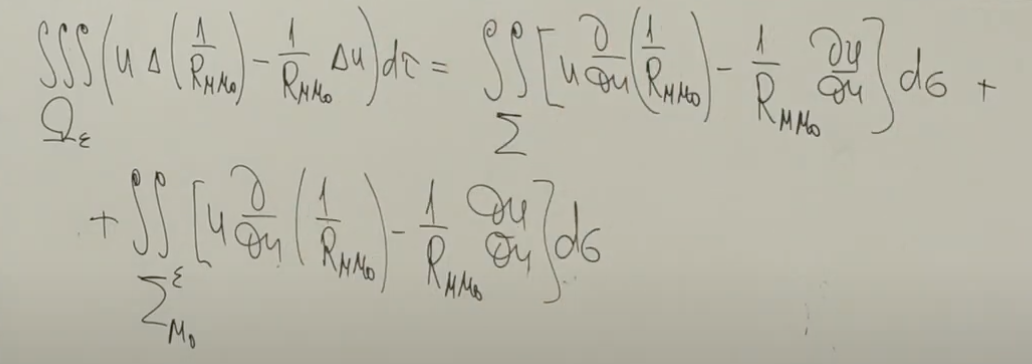 ∭_{Ω_ε} (u Δ(1/R_{MM₀}) − 1/R_{MM₀} Δu) dτ = ∬_Σ [u ∂/∂n (1/R_{MM₀}) − 1/R_{MM₀} ∂u/∂n] dσ +
+ ∬_{Σ^ε_{M₀}} [u ∂/∂n (1/R_{MM₀}) − 1/R_{MM₀} ∂u/∂n] dσ